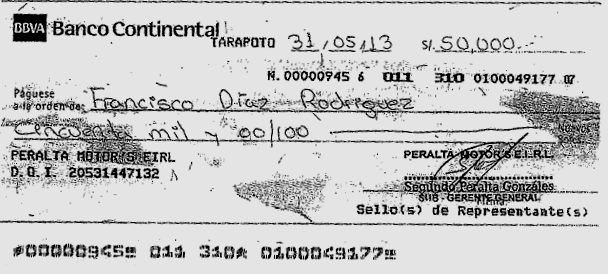 BBVA Banco Continental
TARAPOTO 31,05,13 S/. 50,000.-
N. 00000945 6 011 310 0100049177 07
Páguese
a la orden de: Francisco Díaz Rodriguez
Cincuenta mil y 00/100
PERALTA MOTOR'S EIRL
D.O.I. 20531447132
PERALTA MOTOR'S E.I.R.L.
Segundo Peralta Gonzáles
SUB - GERENTE GENERAL
Firma.
Sello(s) de Representante(s)
00000945 011 310 0100049177